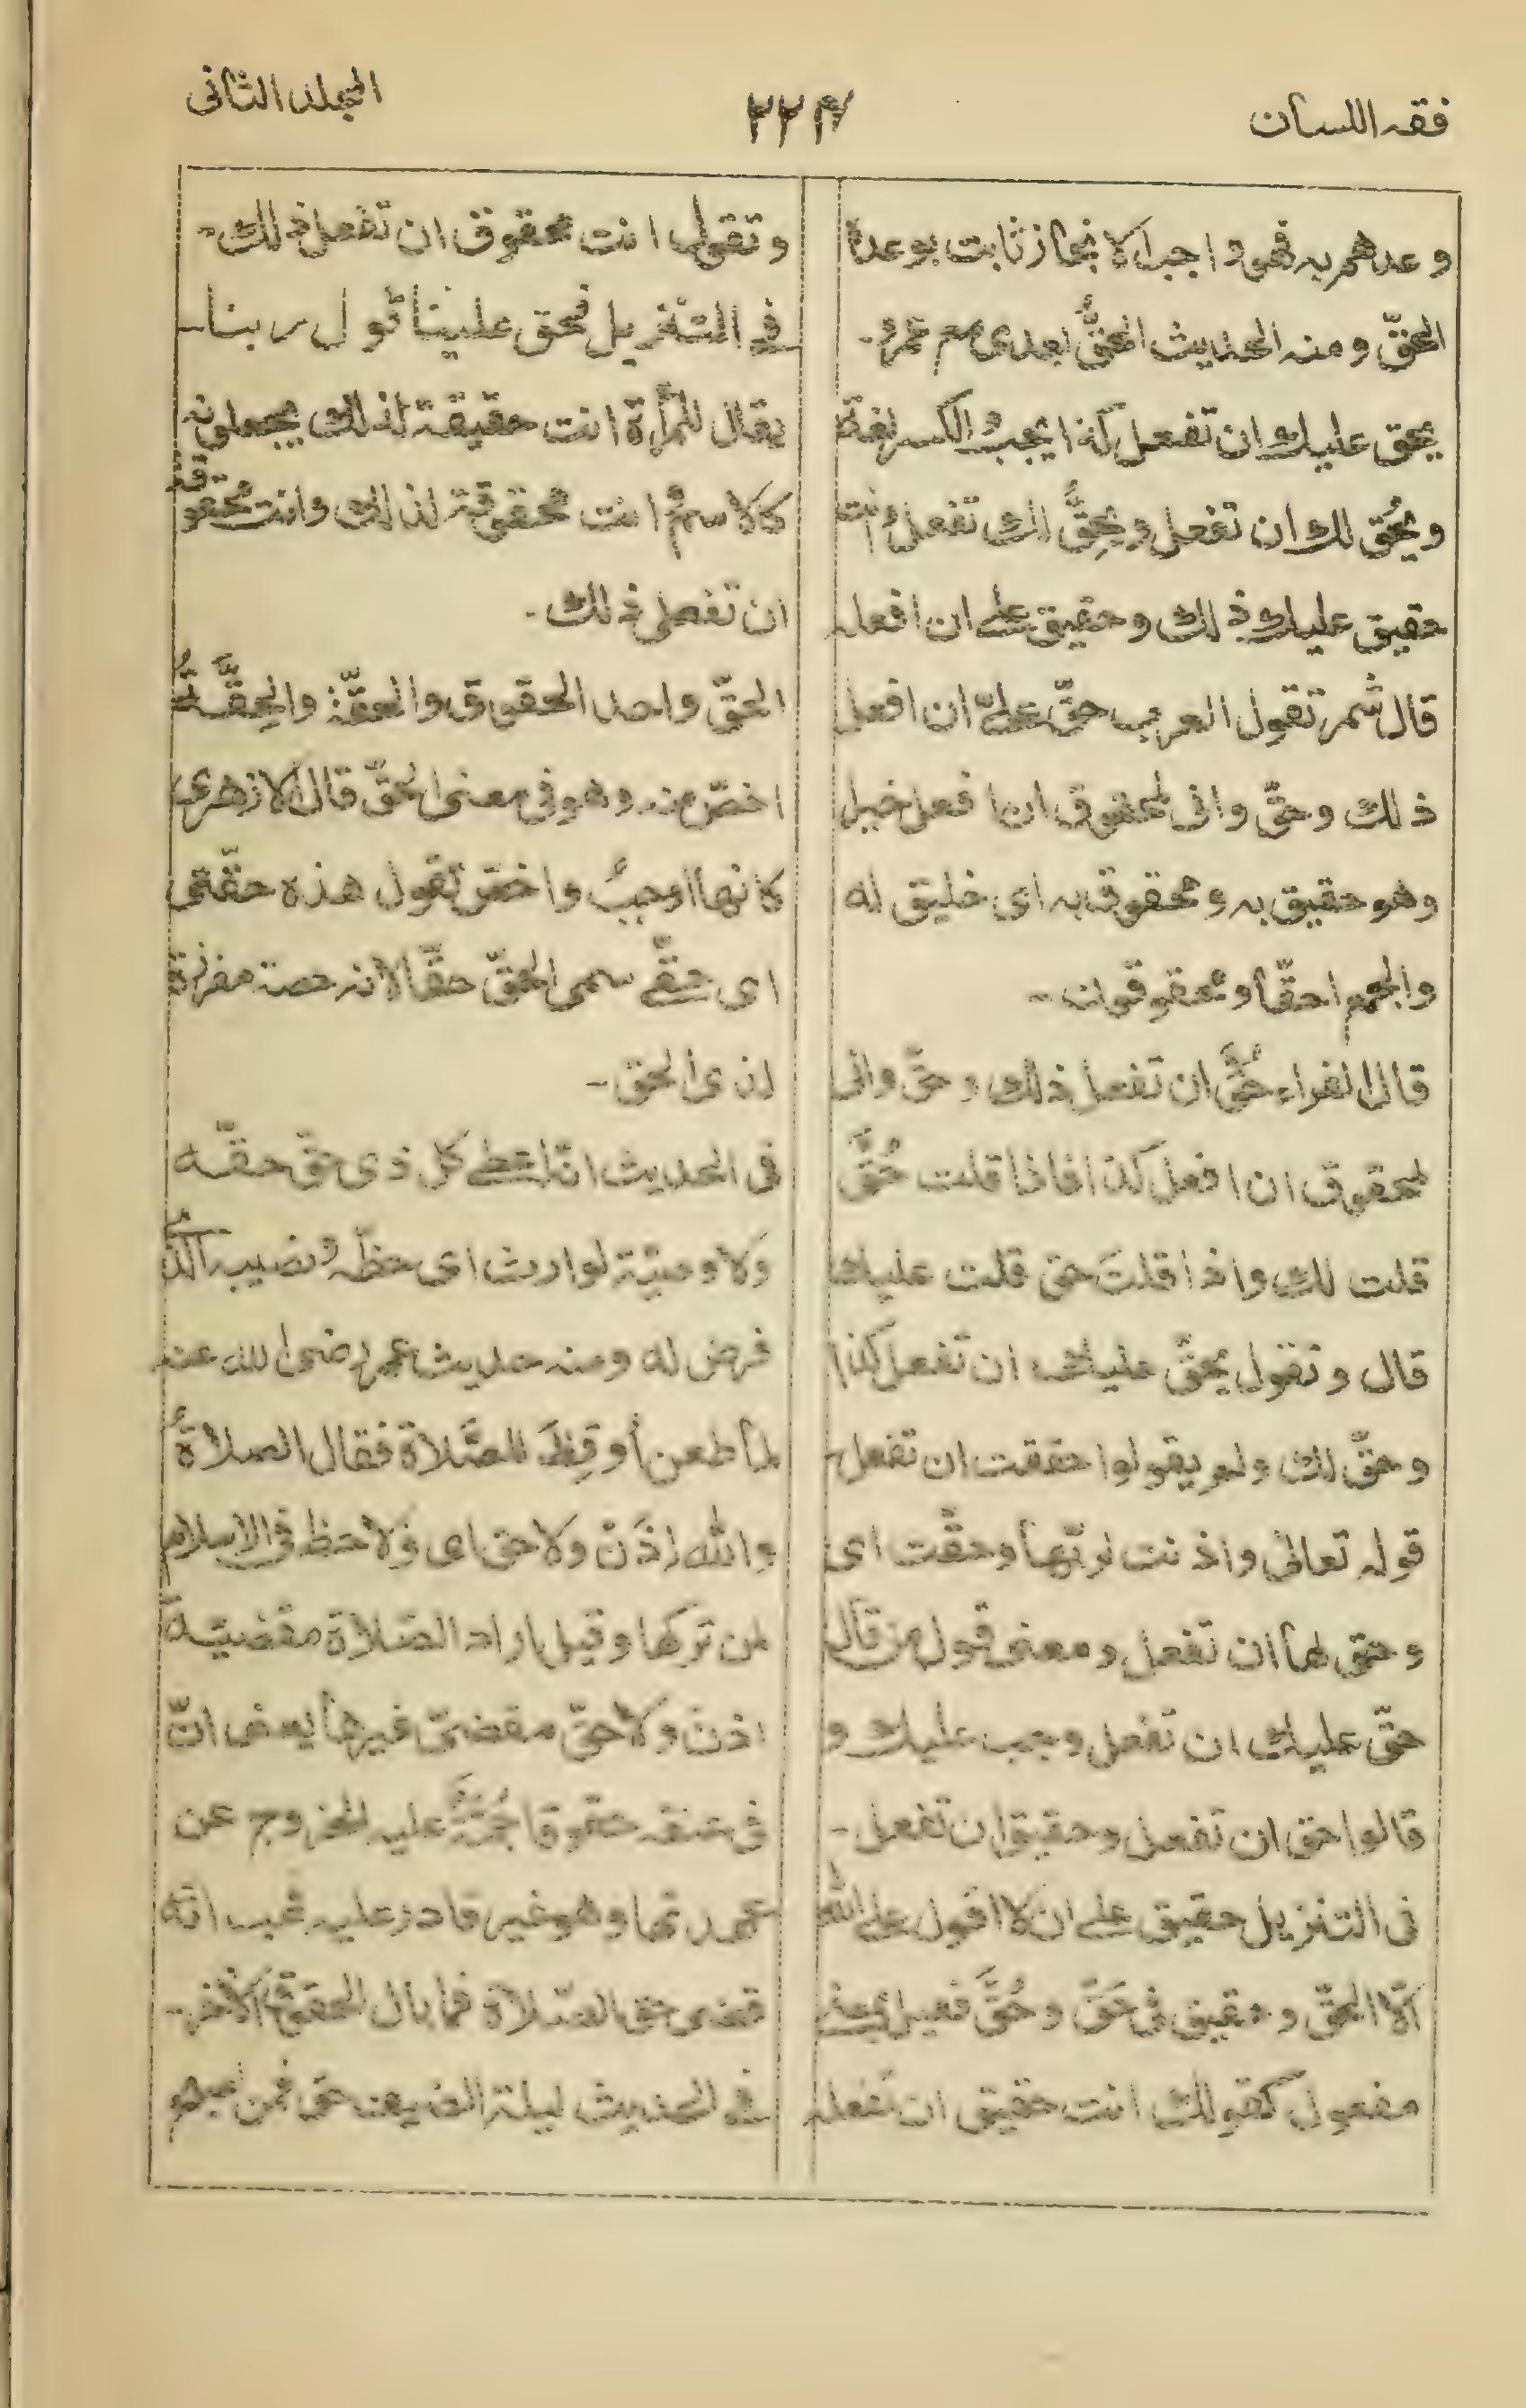 فقه اللسان
٢٢٤
المجلد الثانی
وعدهم به فهو واجب الانجاز ثابت بوعده
الحقّ ومنه الحدیث الحقُّ بعدی مع عمر۔
یحق علیك ان تفعل کذا یجبُ والکسر لغة
ویُحَق لك ان تفعل ویحِقُّ لك تفعل وانت
حقیق علیك ذلك وحقیق علے ان افعله
قال شمر تقول العرب حقَّ علیّ ان افعل
ذلك وحقّ وانی لمحقوق ان افعل خیرا
وهو حقیق به ومحقوق به ای خلیق له
والجمع احقّاء ومحقوقون۔
قال الفراء حُقَّ ان تفعل ذلك وحقّ وانی
لمحقوق ان افعل کذا فاذا قلت حُقَّ
قلت لك واذا قلتَ حق قلت علیك
قال وتقول یحقّ علیك ان تفعل کذا
وحقّ لك ولم یقولوا حققت ان تفعل۔
قوله تعالی واذنت لربّها وحقّت ای
وحق لها ان تفعل ومعنی قول من قال
حقّ علیك ان تفعل وجب علیك و
قالوا حق ان تفعل وحقیق ان تفعل۔
فی التنزیل حقیق علے ان لا اقول علے الله
الّا الحقّ وحقیق فی حَقَّ وحُقَّ فعیل بمعنے
مفعول کقولك انت حقیق ان تفعله
وتقول انت محقوق ان تفعل ذلك۔
فے التنزیل فحق علینا قول ربنا۔
یقال للمرأة انت حقیقة لذلك یجعلونه
کالاسم وانت محقوقة لذلك وانت محقوقة
ان تفعلی ذلك۔
الحقّ واحد الحقوق والحقّة والحِقّةُ
اخصّ منه وهو فی معنی الحقّ قال الازهری
کانها اوجبُ واخصّ تقول هذه حقّتی
ای حقّے سمی الحقّ حقّا لانه حصة مفرزة
لذی الحق۔
فی الحدیث انّه اعطے کل ذی حقّ حقّه
ولا وصیّة لوارث ای حظّه ونصیبه الذی
فرض له ومنه حدیث عمر رضی الله عنه
لما طعن أوقِظَ للصَّلاة فقال الصلاةُ
والله اذَنْ ولا حق ای ولا حظ فی الاسلام
لمن ترکها وقیل اراد الصّلاة مقضیّة
اذنْ ولا حقّ مقضیّ غیرها یعنی انّ
فی عنقه حقوقا جُمَّة علیه الخروج عن
عهدتها وهو غیر قادر علیه فهب انّه
قضی حق الصّلاة فما بال الحقوق الاخر۔
فے الحدیث لیلة الضیف حق فمن اصبح